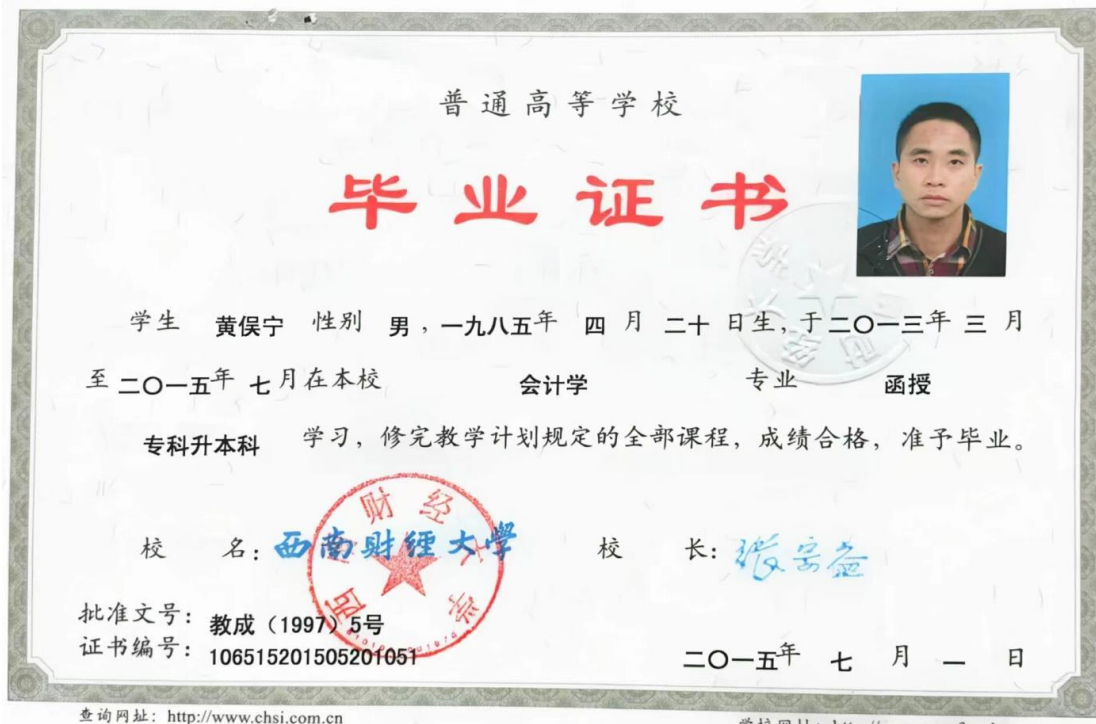 普通高等学校
毕业证书
学生 黄俣宁 性别 男，一九八五年 四 月 二十 日生，于二〇一三年 三 月
至 二〇一五年 七月在本校 会计学 专业 函授
专科升本科 学习，修完教学计划规定的全部课程，成绩合格，准予毕业。
校 名：西南财经大学 校 长：张宗益
西南财经大学
批准文号：教成（1997）5号
证书编号：106515201505201051
二〇一五年 七 月 一 日
查询网址：http://www.chsi.com.cn